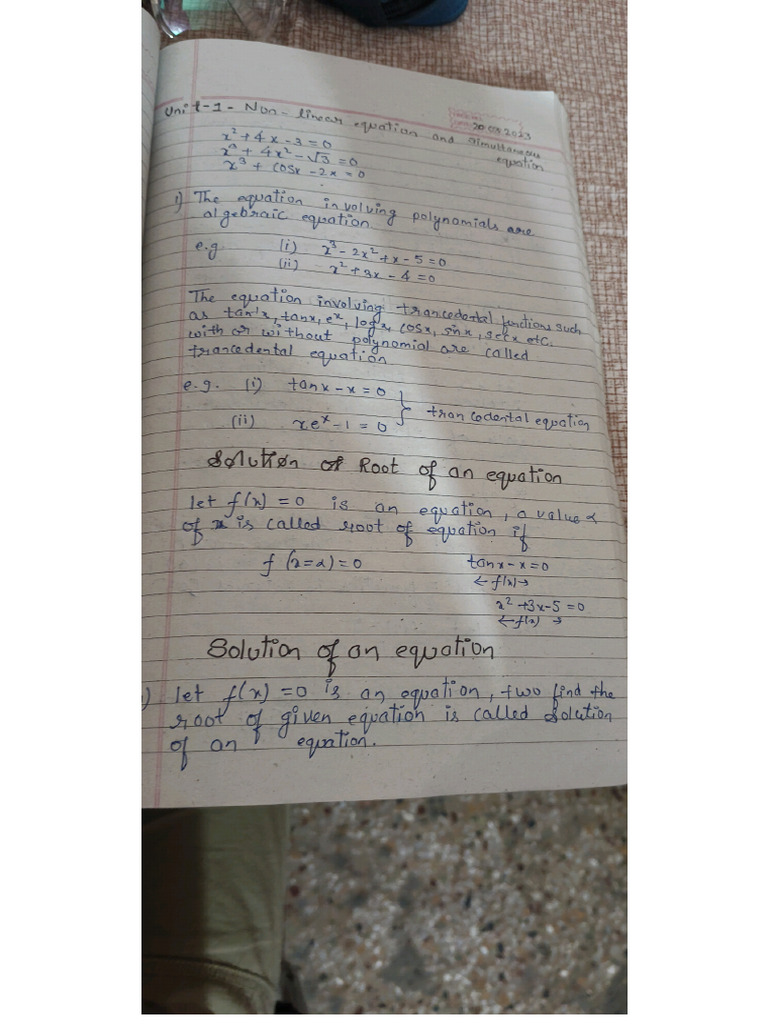 20 08 2023
Unit-1- Non-linear equation and simultaneous
equation
x² + 4x - 3 = 0
x³ + 4x² - √3 = 0
x³ + cosx - 2x = 0
1) The equation involving polynomials are
algebraic equation.
e.g (i) x³ - 2x² + x - 5 = 0
(ii) x² + 3x - 4 = 0
The equation involving trancedental functions such
as tan⁻¹x, tanx, eˣ, logx, cosx, sinx, secx etc.
with or without polynomial are called
trancedental equation
e.g. (i) tanx - x = 0
(ii) xeˣ - 1 = 0 } trancedental equation
Solution of Root of an equation
let f(x) = 0 is an equation, a value α
of x is called root of equation if
f(x=α) = 0 tanx - x = 0
← f(x) →
x² + 3x - 5 = 0
← f(x) →
Solution of an equation
) let f(x) = 0 is an equation, two find the
root of given equation is called solution
of an equation.